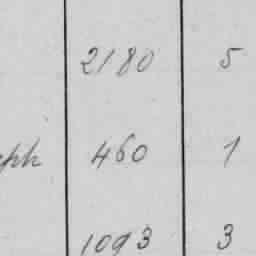 2180 5
460 1
1093 3